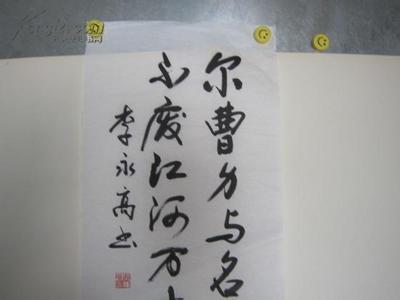 尔曹身与名
不废江河万
李永高书